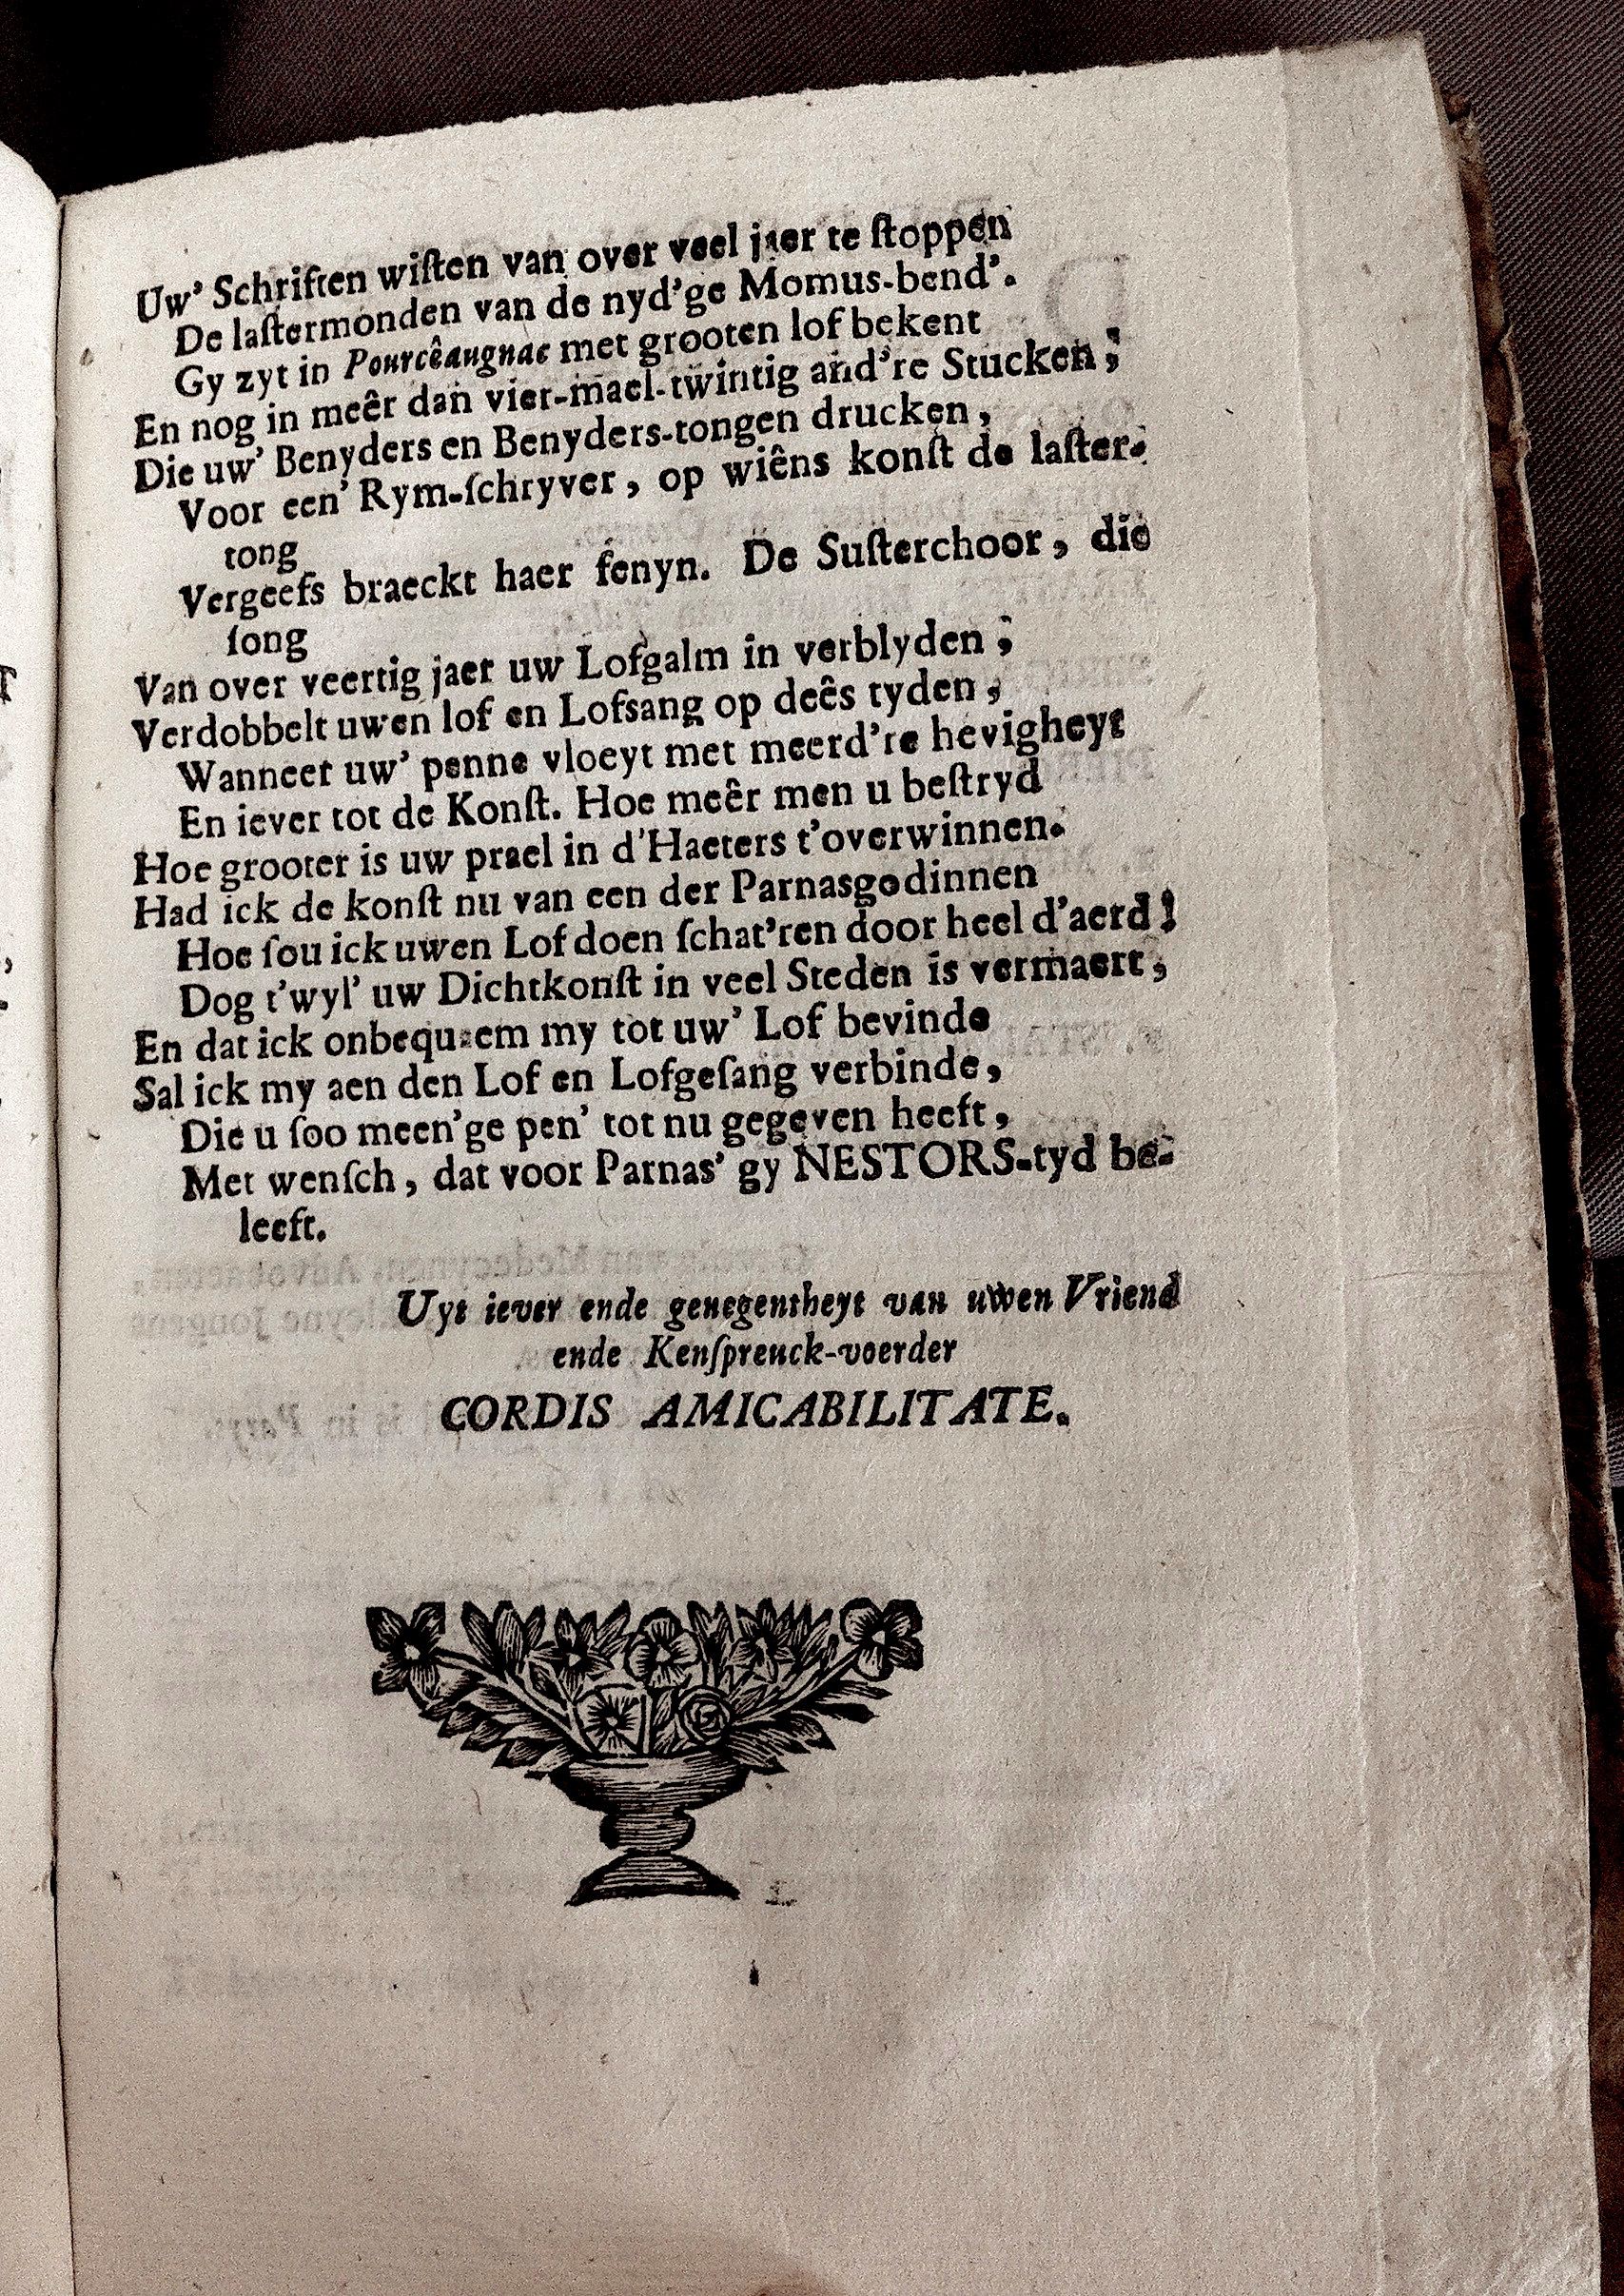 Uw' Schriften wiſten van over veel jaer te ſtoppen
De laſtermonden van de nyd'ge Momus-bend'.
Gy zyt in Pourcêaugnac met grooten lof bekent
En nog in meêr dan vier-mael-twintig and're Stucken;
Die uw' Benyders en Benyders-tongen drucken,
Voor een' Rym-ſchryver, op wiêns konſt de laſter-
tong
Vergeefs braeckt haer fenyn. De Suſterchoor, die
ſong
Van over veertig jaer uw Lofgalm in verblyden;
Verdobbelt uwen lof en Lofsang op deês tyden,
Wanneer uw' penne vloeyt met meerd're hevigheyt
En iever tot de Konſt. Hoe meêr men u beſtryd
Hoe grooter is uw prael in d'Haeters t'overwinnen.
Had ick de konſt nu van een der Parnasgodinnen
Hoe ſou ick uwen Lof doen ſchat'ren door heel d'aerd!
Dog t'wyl' uw Dichtkonſt in veel Steden is vermaert,
En dat ick onbequaem my tot uw' Lof bevinde
Sal ick my aen den Lof en Lofgeſang verbinde,
Die u ſoo meen'ge pen' tot nu gegeven heeft,
Met wenſch, dat voor Parnas' gy NESTORS-tyd be-
leeft.
Uyt iever ende genegentheyt van uwen Vriend
ende Kenſpreuck-voerder
CORDIS AMICABILITATE.